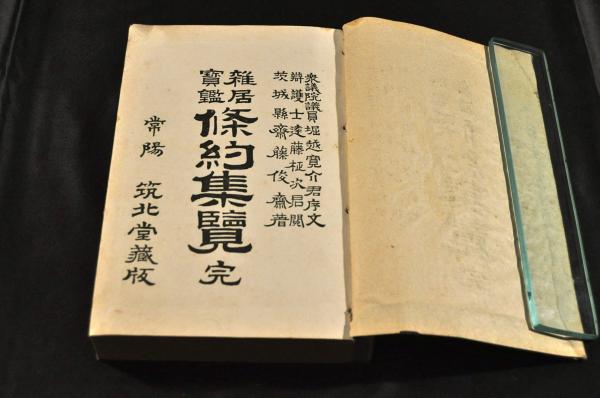 衆議院議員堀越寛介君序文
辯護士遠藤柾次君閲
茨城縣齋藤俊齋著
雜居寶鑑
條約集覽 完
常陽 筑北堂藏版